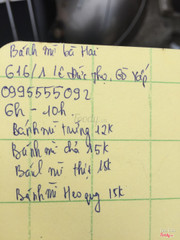 Bánh mì bà Hai
616/1 Lê Đức Thọ, Gò Vấp
0995555092
6h - 10h.
Bánh mì trứng 12k
Bánh mì chả 15k
Bánh mì thịt 15k
Bánh mì Heo quay 15k